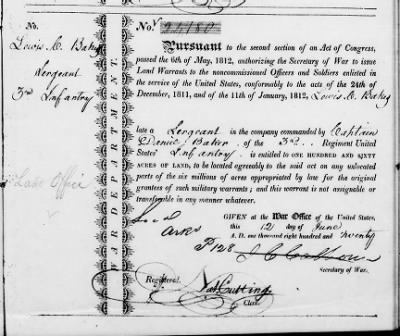 No.
Lewis C. Baker
Sergeant
3rd Infantry
Land Office
WAR DEPARTMENT.
No. 24180
Pursuant to the second section of an Act of Congress,
passed the 6th of May, 1812, authorizing the Secretary of War to issue
Land Warrants to the noncommissioned Officers and Soldiers enlisted in
the service of the United States, conformably to the acts of the 24th of
December, 1811, and of the 11th of January, 1812, Lewis C. Baker
late a Sergeant in the company commanded by Captain
Daniel Baker of the 3rd Regiment United
States' Infantry, is entitled to ONE HUNDRED AND SIXTY
ACRES OF LAND, to be located agreeably to the said act on any unlocated
parts of the six millions of acres appropriated by law for the original
grantees of such military warrants; and this warrant is not assignable or
transferable in any manner whatever.
GIVEN at the War Office of the United States,
this 12 day of June
A. D. one thousand eight hundred and twenty
Arks
P 128
J C Calhoun
Secretary of War.
Registered.
Nat Cutting
Clerk.